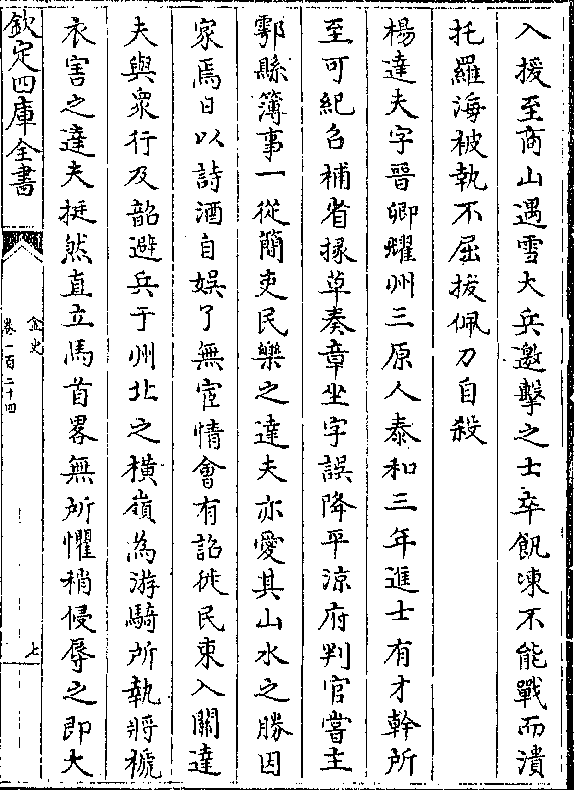 入援至商山遇雪大兵邀擊之士卒飢凍不能戰而潰
托羅海被執不屈拔佩刀自殺
楊達夫字晉卿耀州三原人泰和三年進士有才幹所
至可紀召補省掾草奏章坐字誤降平涼府判官嘗主
鄠縣簿事一從簡吏民樂之達夫亦愛其山水之勝因
家焉日以詩酒自娛了無宦情會有詔徙民東入關達
夫與衆行及韶避兵于州北之横嶺為游騎所執將褫
衣害之達夫挺然直立馬首畧無所懼稍侵辱之即大
欽定四庫全書
金史
卷一百二十四
七